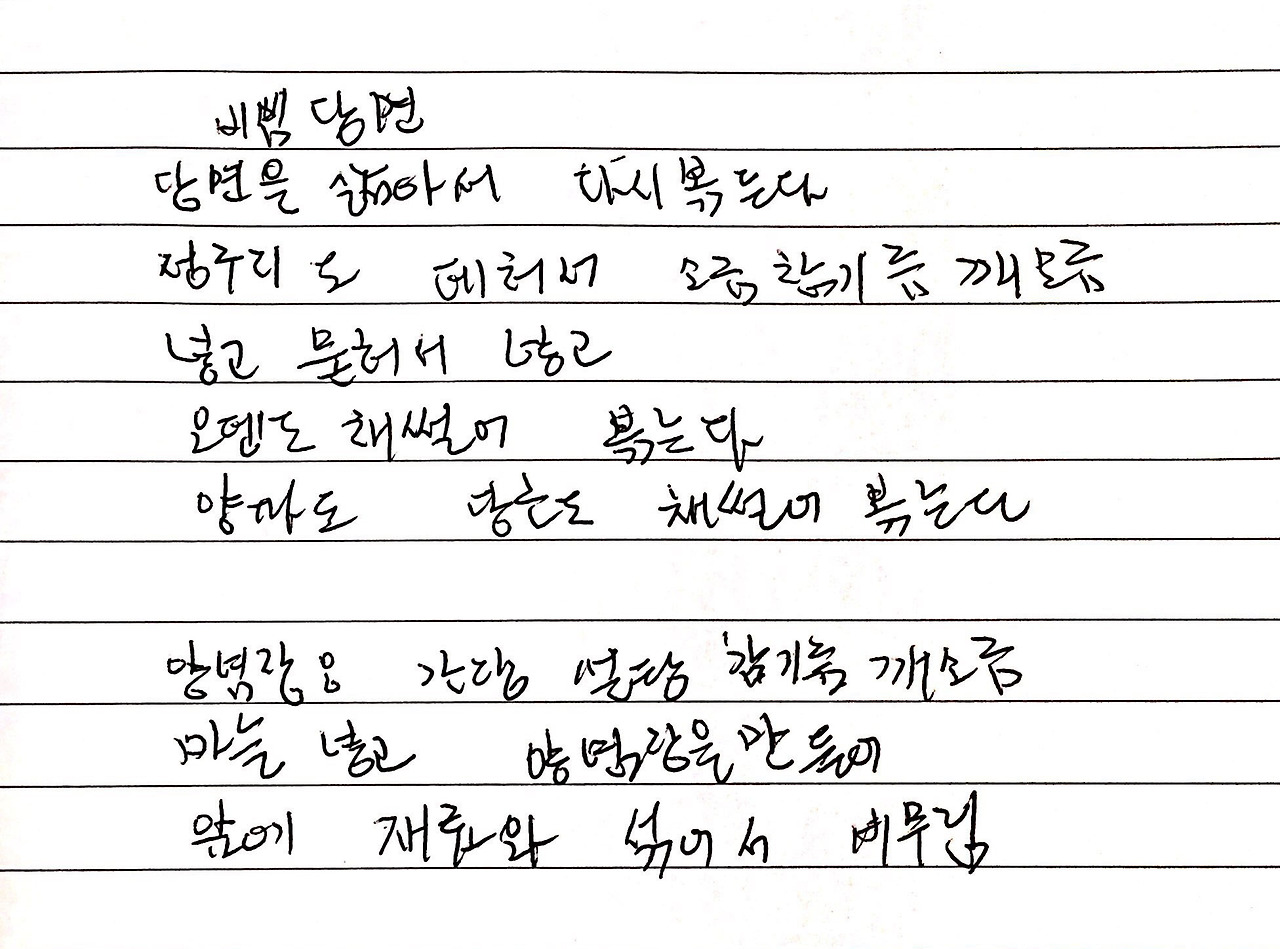 비빔 당면
당면을 삶아서 다시 볶는다
정구지도 데쳐서 소금 참기름 깨소금
넣고 묻혀서 넣고
오뎅도 채썰어 볶는다
양파도 당근도 채썰어 볶는다
양념장은 간장 설탕 참기름 깨소금
마늘 넣고 양념장을 만들어
앞에 재료와 섞어서 버무림